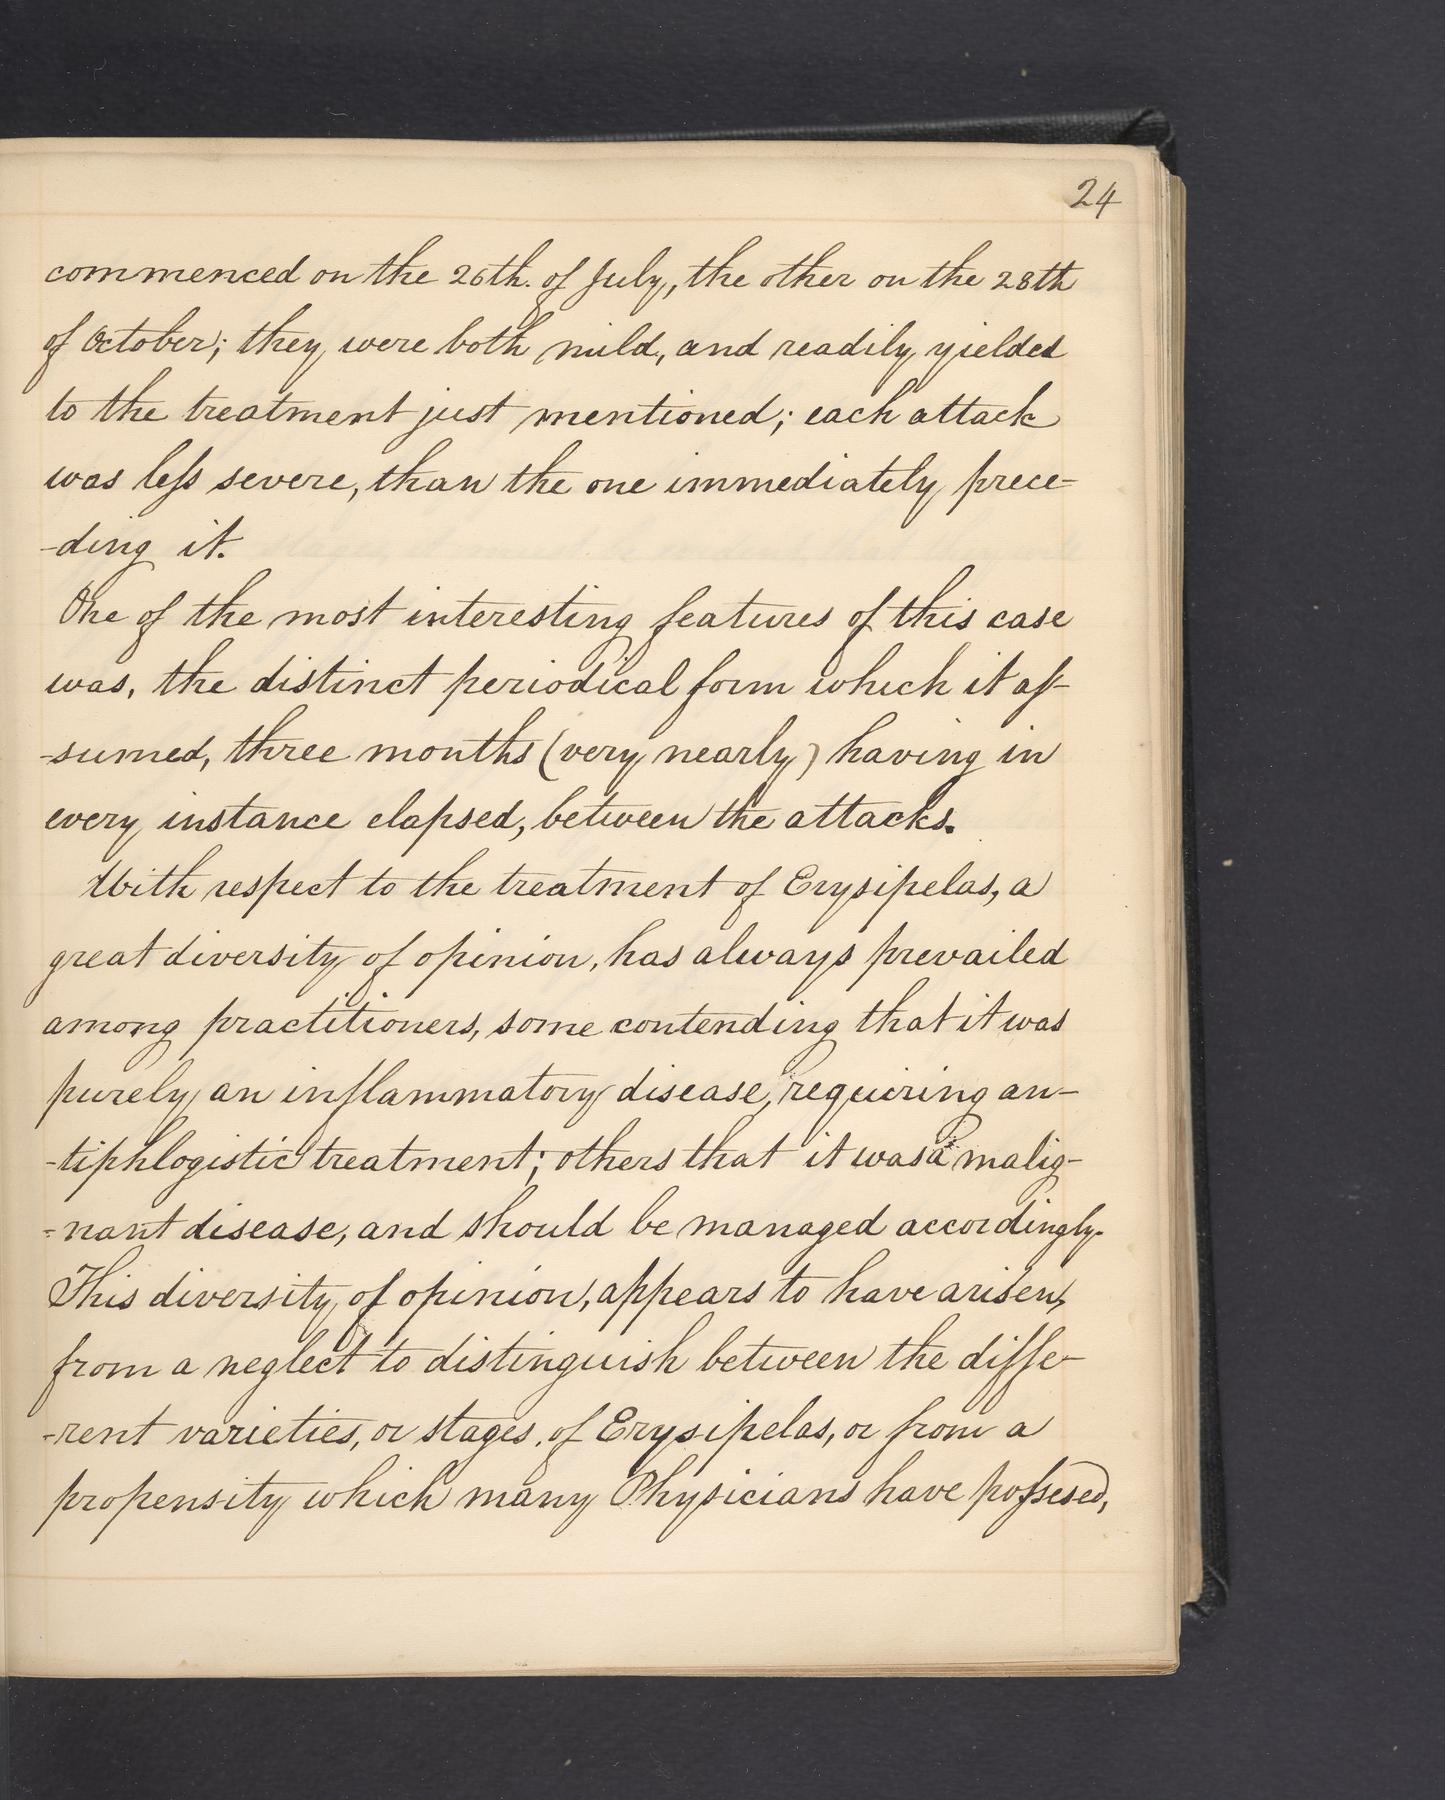 24
commenced on the 26th. of July, the other on the 28th
of October; they were both mild, and readily yielded
to the treatment just mentioned; each attack
was leſs severe, than the one immediately prece-
-ding it.
One of the most interesting features of this case
was, the distinct periodical form which it aſ-
-sumed, three months (very nearly) having in
every instance elapsed, between the attacks.
With respect to the treatment of Erysipelas, a
great diversity of opinion, has always prevailed
among practitioners, some contending that it was
purely an inflammatory disease, requiring an-
-tiphlogistic treatment; others that it was a malig-
-nant disease, and should be managed accordingly.
This diversity of opinion, appears to have arisen,
from a neglect to distinguish between the diffe-
-rent varieties, or stages, of Erysipelas, or from a
propensity which many Physicians have poſsesed,